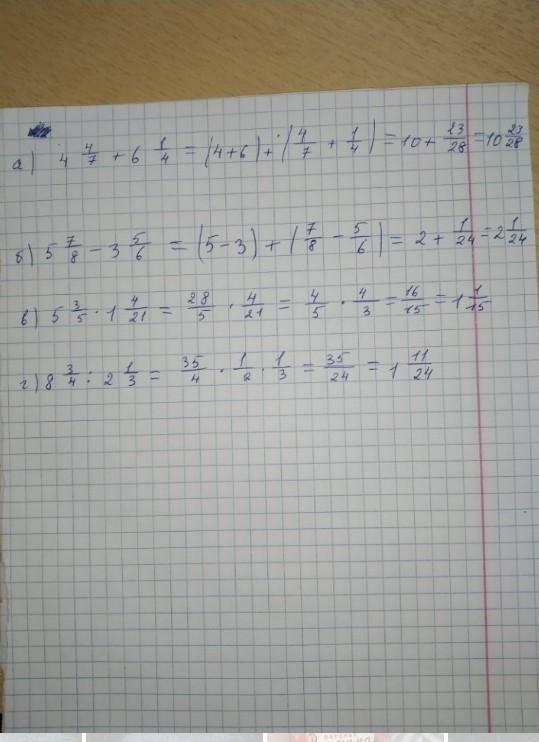 а) 4 4/7 + 6 1/4 = (4+6) + (4/7 + 1/4) = 10 + 23/28 = 10 23/28
б) 5 7/8 - 3 5/6 = (5-3) + (7/8 - 5/6) = 2 + 1/24 = 2 1/24
в) 5 3/5 · 1 4/21 = 28/5 · 4/21 = 4/5 · 4/3 = 16/15 = 1 1/15
г) 8 3/4 : 2 1/3 = 35/4 · 1/2 · 1/3 = 35/24 = 1 11/24